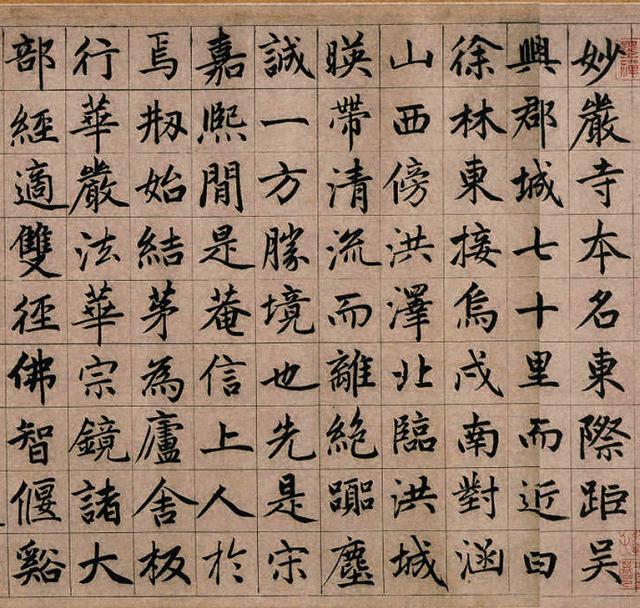 妙嚴寺本名東際距吳
興郡城七十里而近曰
徐林東接烏戍南對涵
山西傍洪澤北臨洪城
暎帶清流而離絕躔塵
誠一方勝境也先是宋
嘉熙間是菴信上人於
焉剏始結茅為廬舍板
行華嚴法華宗鏡諸大
部經適雙徑佛智偃谿